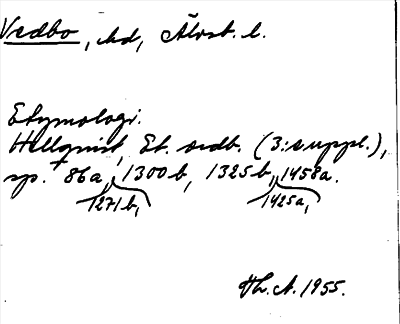 Vedbo, hd, Älvsb. l.
Etymologi.
Hellquist, Et. ordb. (3:e uppl.),
sp. 86a, 1300b, 1325b, 1458a.
1271b, 1425a,
1955.